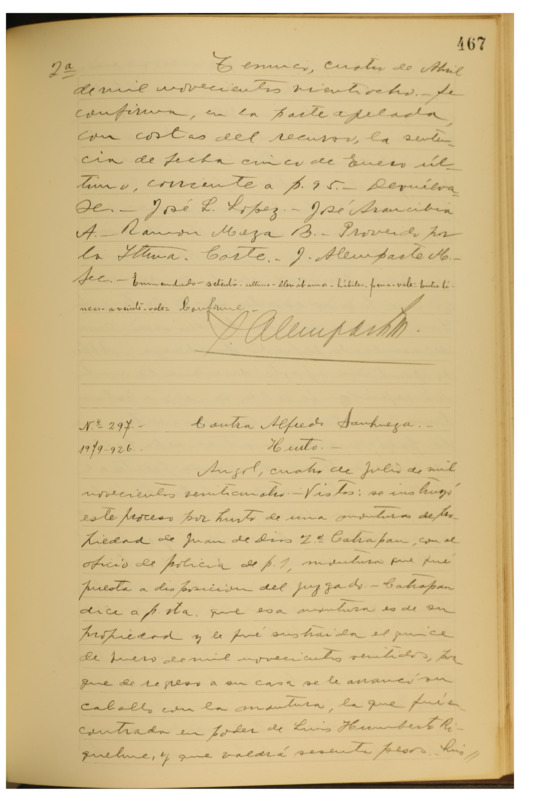 467
2ª Temuco, cuatro de Abril
de mil novecientos veintiocho.- Se
confirma, en la parte apelada,
con costas del recurso, la senten-
cia de fecha cinco de Enero úl-
timo, corriente a f. 95.- Devuélva-
se.- José L. Lopez.- José Arancibia
A.- Ramon Meza B.- Proveido por
la Iltma. Corte.- J. Alemparte M.-
Sec.- Enmendado- vale- entre lí-
neas- vale. Conforme
J. Alemparte M.
Nº 297.- Contra Alfredo Sanhueza.-
1979-926.- Hurto.-
Angol, cuatro de Julio de mil
novecientos veinticuatro.- Vistos: se instruyó
este proceso por hurto de una montura de pro-
piedad de Juan de Dios 2º Catrapan, con el
oficio de policía de f. 1, montura que fué
puesta a disposicion del juzgado.- Catrapan
dice a f vta. que esa montura es de su
propiedad y le fué sustraida el quince
de Enero de mil novecientos veintidos, por
que de regreso a su casa se le arrancó su
caballo con la montura, la que fué en
contrada en poder de Luis Humberto Ri-
quelme, y que valdrá sesenta pesos. Luis